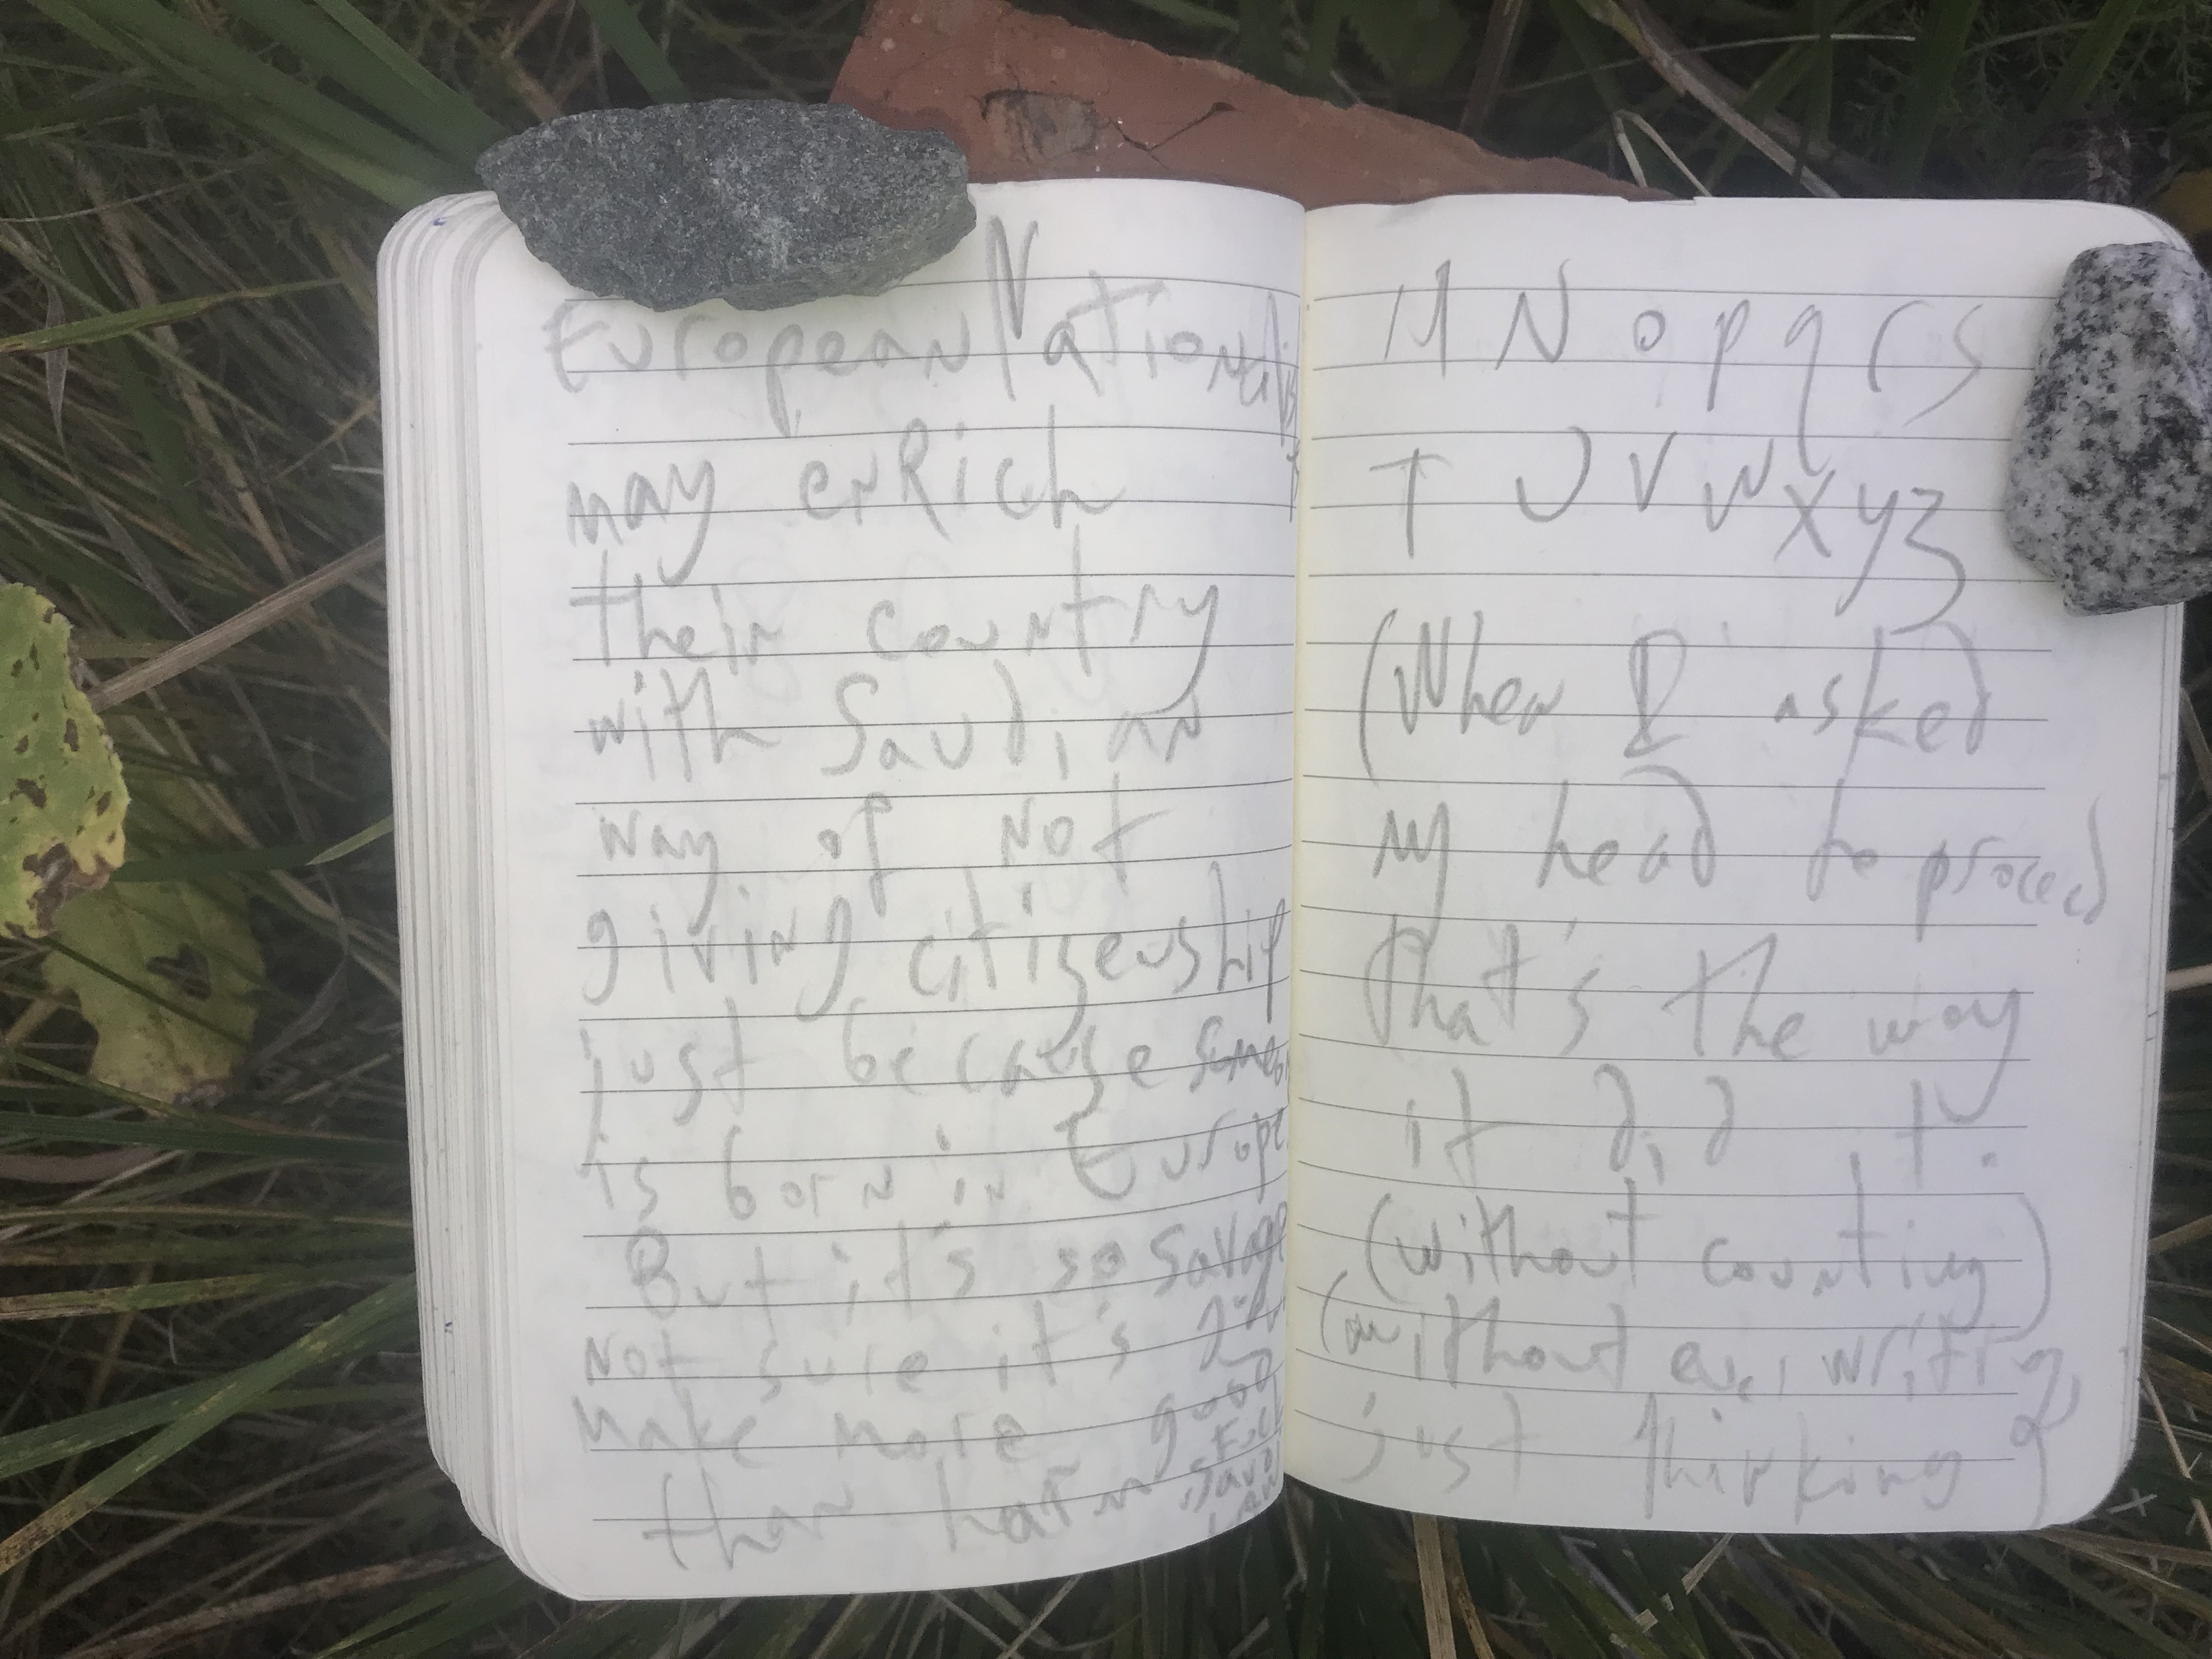 European Nationality
may enRich
their country
with Savj in
way of not
giving citisenship
just becaose someone
is born in Europe
But id is so savage
Not sure it is
make more good
than harm,
M N O P q r S
T U V W X Y Z
(When I is asked
my head be proled
(that's the way
it did it.
(without counting)
(without ever writing
just thinking of